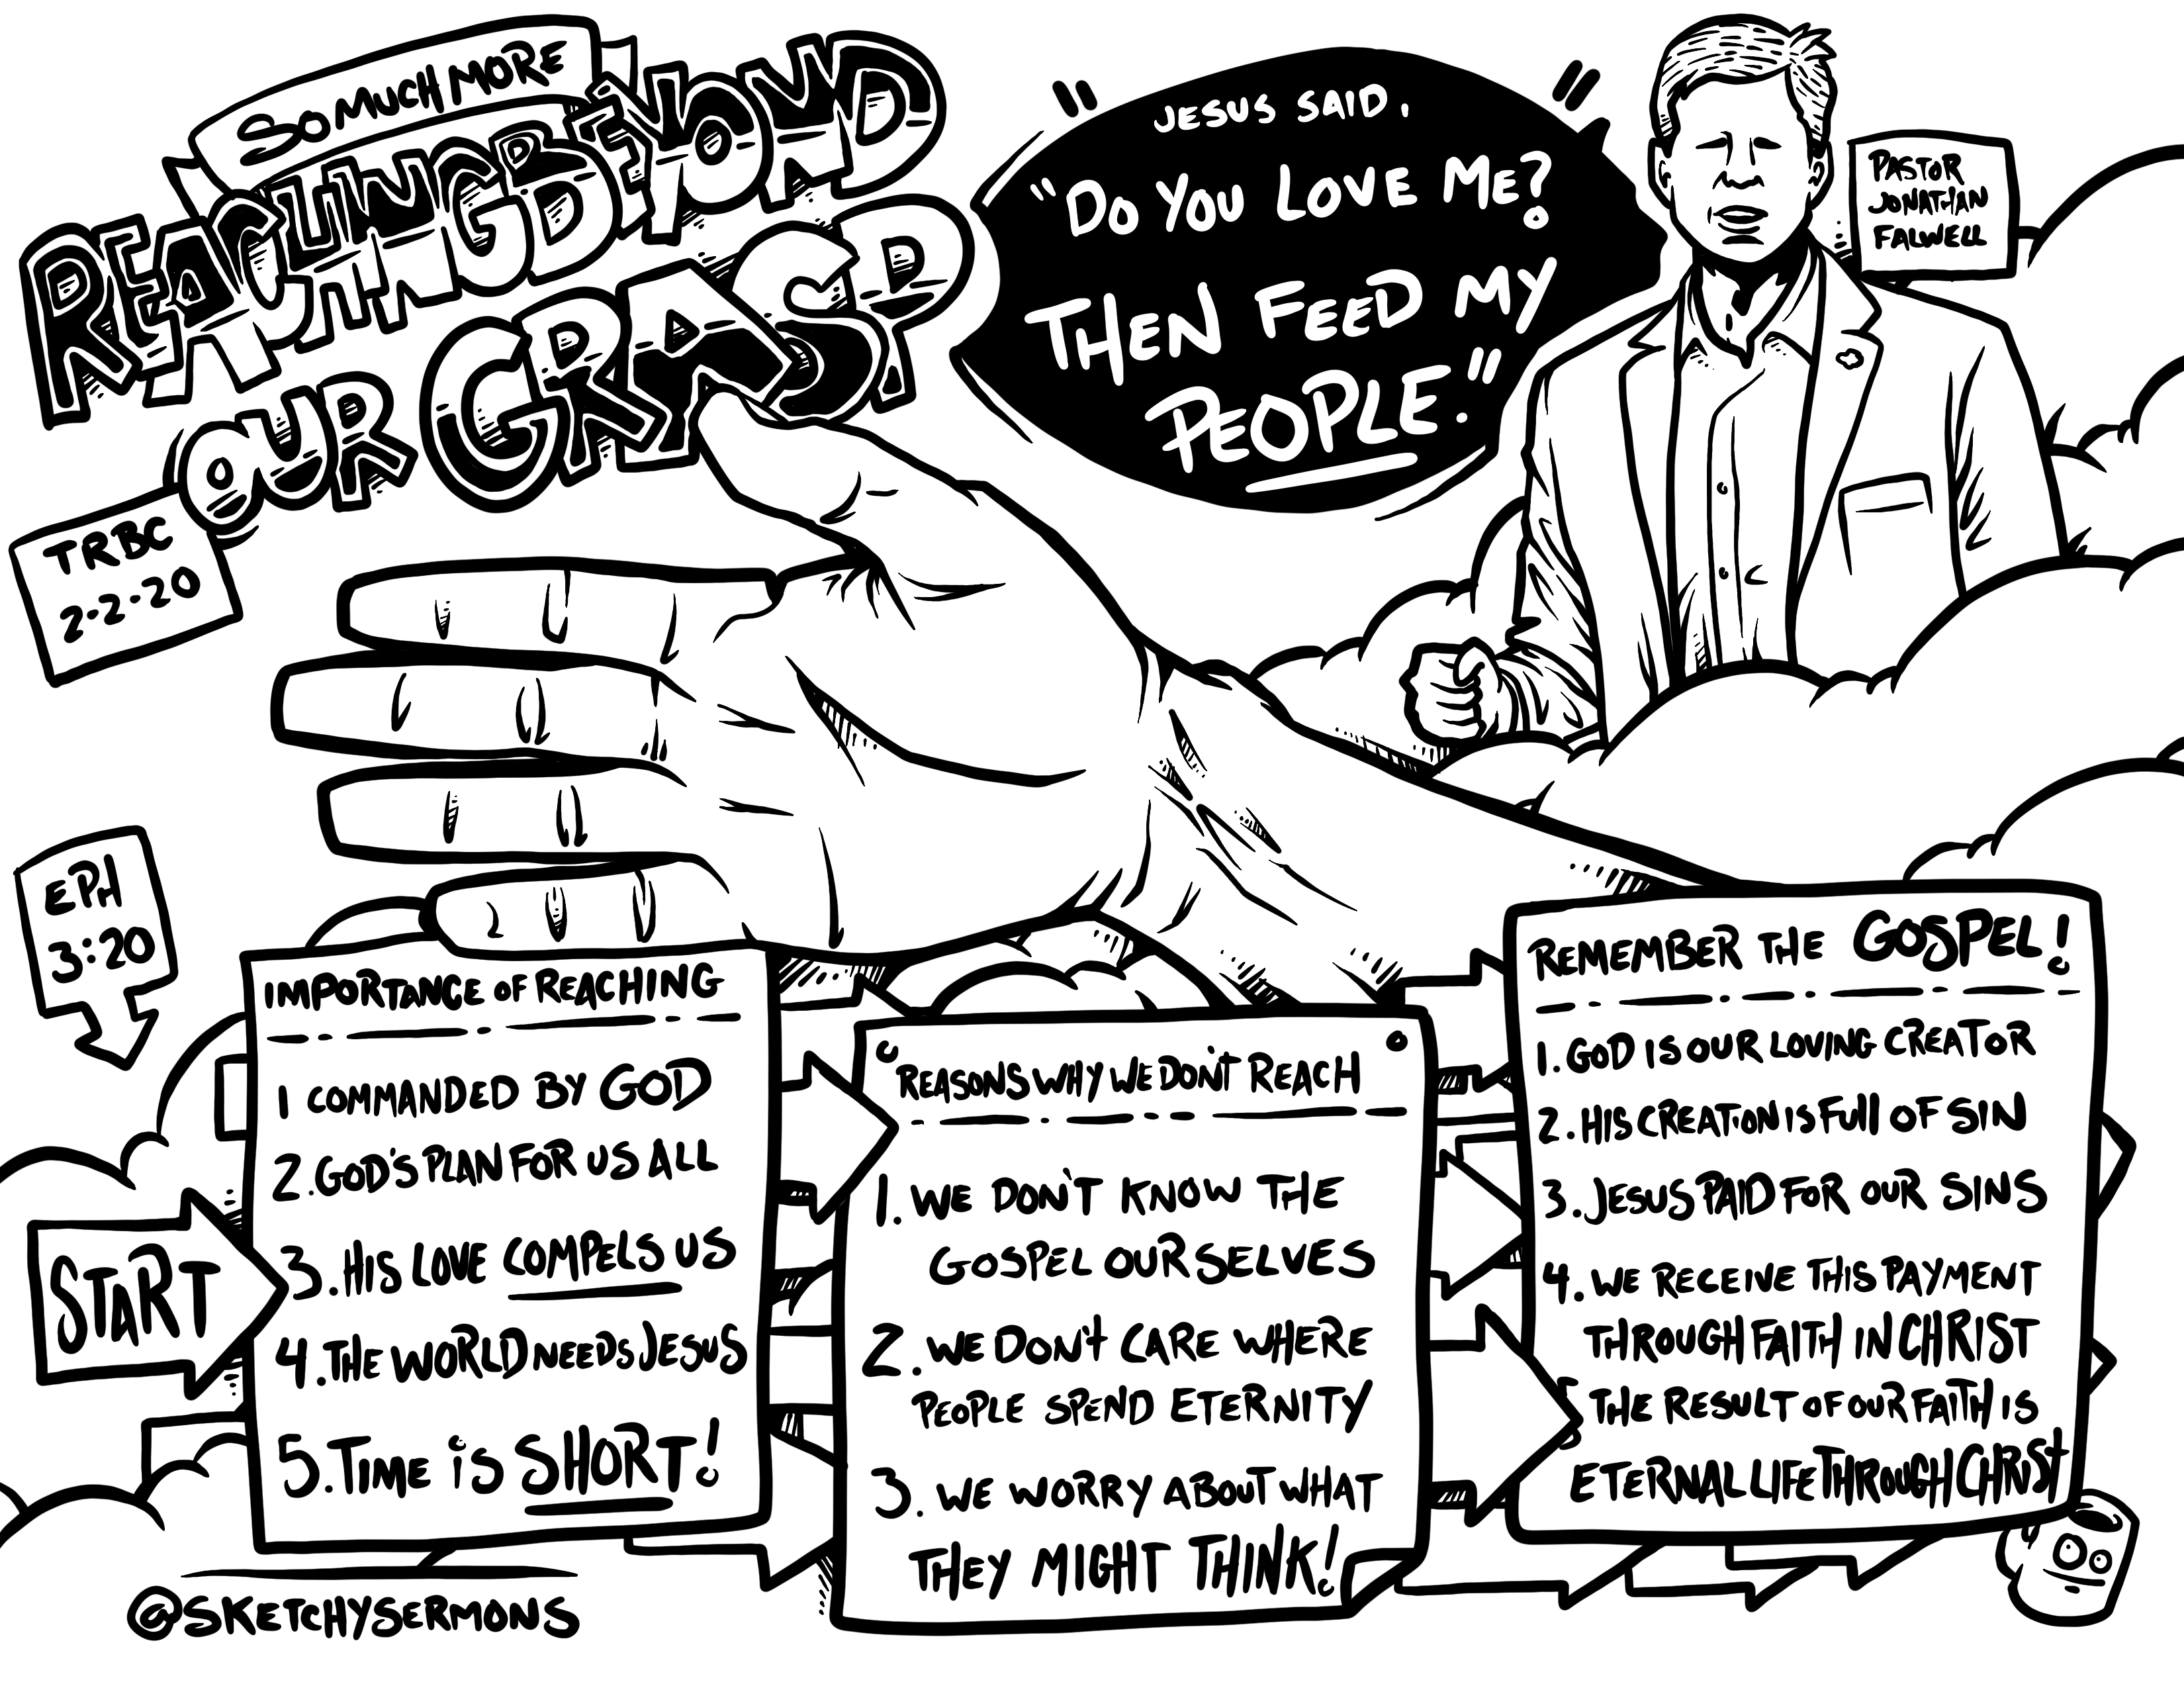 SO MUCH MORE
REACHING BEYOND
OUR GRASP
TRBC
2-2-20
JESUS SAID,
"DO YOU LOVE ME?
THEN FEED MY
PEOPLE."
PASTOR
JONATHAN
FALWELL
EPH
3:20
START
IMPORTANCE OF REACHING
1 COMMANDED BY GOD
2. GOD'S PLAN FOR US ALL
3. HIS LOVE COMPELS US
4. THE WORLD NEEDS JESUS
5. TIME iS SHORT!
REASONS WHY WE DON'T REACH
1. WE DON'T KNOW THE
GOSPEL OURSELVES
2. WE DON't CARE WHERE
PEOPLE SPEND ETERNITY
3. WE WORRY ABOUT WHAT
THEY MIGHT THINK!
REMEMBER THE GOSPEL!
1. GOD IS OUR LOVING CREATOR
2. HIS CREATION IS FUll OF SIN
3. JESUS PAID FOR OUR SINS
4. WE RECEIVE THIS PAYMENT
THROUGH FAITH IN CHRIST
THE RESULT OF OUR FAITH IS
ETERNAL LIFE THROUGH CHRISt
@SKETCHYSERMONS